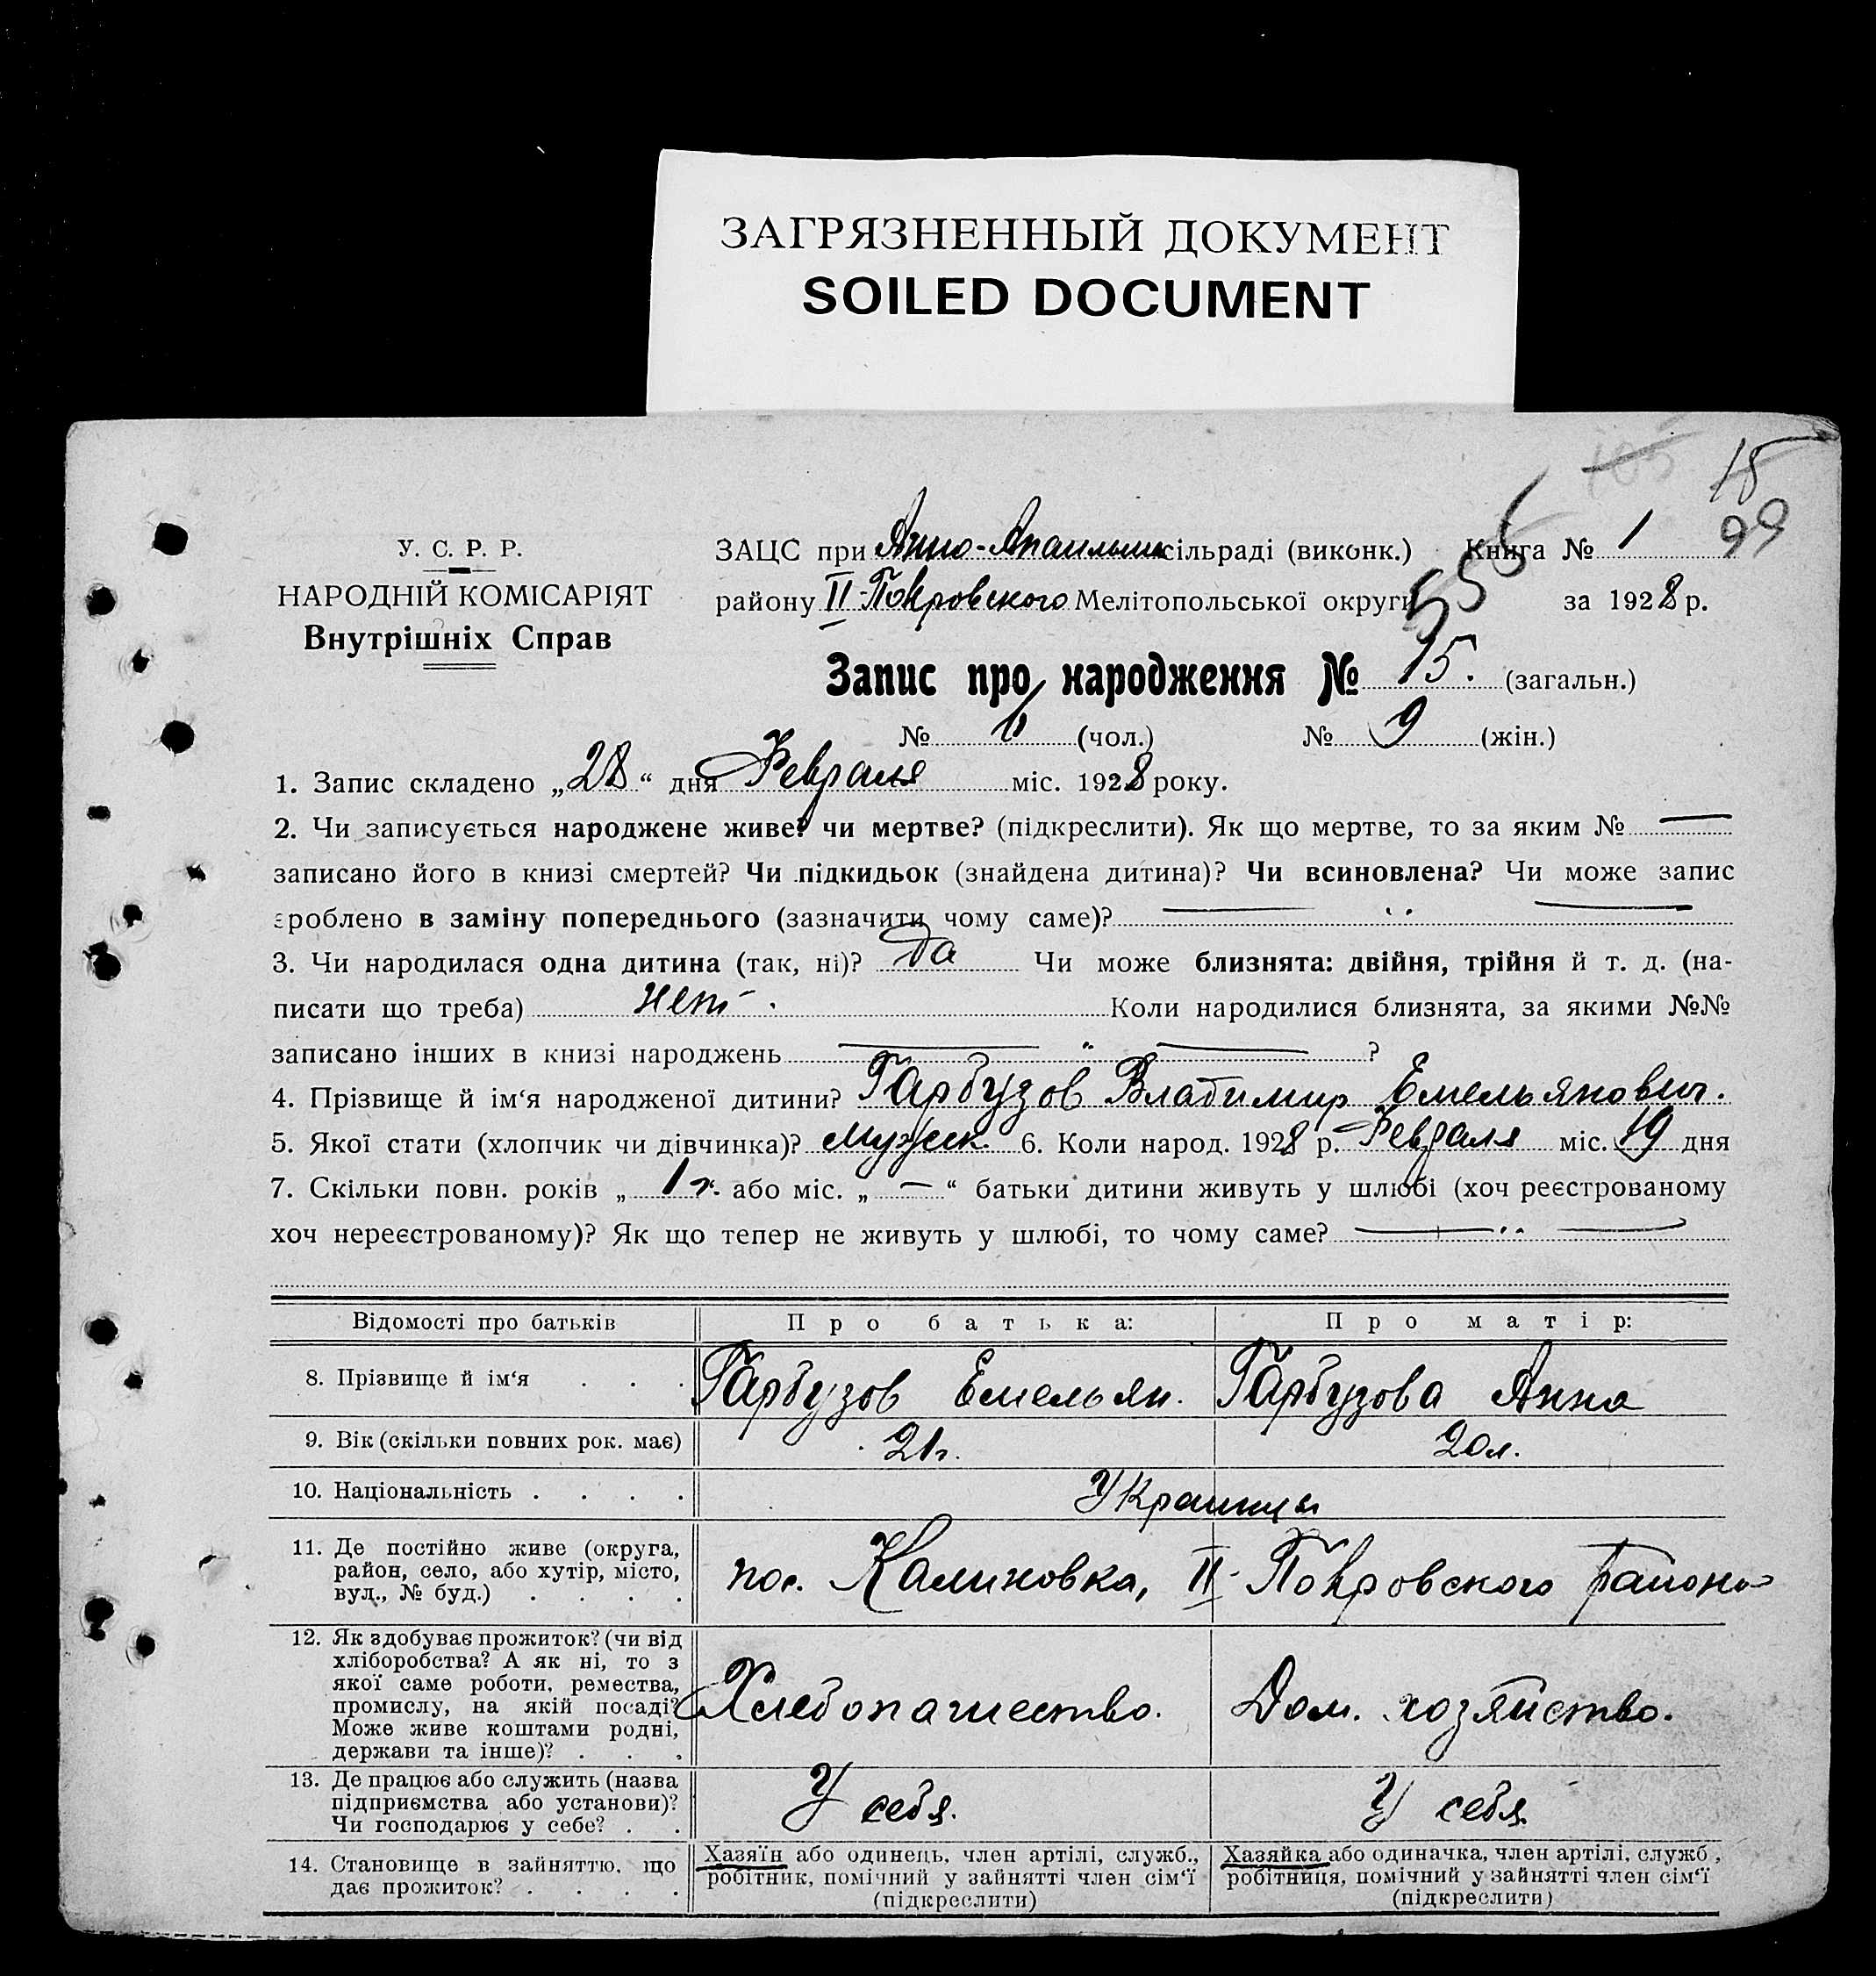 ЗАГРЯЗНЕННЫЙ ДОКУМЕНТ
SOILED DOCUMENT
105
15
99
У. С. Р. Р.
НАРОДНІЙ КОМІСАРІЯТ
Внутрішніх Справ
ЗАЦС при Анно- сільраді (виконк.) Книга № 1
556
району II-Покровского Мелітопольської округи за 1928 р.
Запис про народження № 15. (загальн.)
№ 6 (чол.) № 9 (жін.)
1. Запис складено „28“ дня Февраля міс. 1928 року.
2. Чи записується народжене живе? чи мертве? (підкреслити). Як що мертве, то за яким № —
записано його в книзі смертей? Чи підкидьок (знайдена дитина)? Чи всиновлена? Чи може запис
зроблено в заміну попереднього (зазначити чому саме)? — " —
3. Чи народилася одна дитина (так, ні)? Да Чи може близнята: двійня, трійня й т. д. (на-
писати що треба) нет. Коли народилися близнята, за якими №№
записано інших в книзі народжень — " — ?
4. Прізвище й ім‘я народженої дитини? Гарбузов Владимир Емельянович.
5. Якої стати (хлопчик чи дівчинка)? Мужск. 6. Коли народ. 1928 р. Февраля міс. 19 дня
7. Скільки повн. років „ 1 г. або міс. „ — “ батьки дитини живуть у шлюбі (хоч реєстрованому
хоч нереєстрованому)? Як що тепер не живуть у шлюбі, то чому саме? — " —
Відомості про батьків Про батька: Про матір:
8. Прізвище й ім‘я . . . Гарбузов Емельян. Гарбузова Анна
9. Вік (скільки повних рок. має) 21г. 20л.
10. Національність . . . . Украинцы
11. Де постійно живе (округа,
район, село, або хутір, місто,
вул., № буд.) . . . .
пос. Калиновка, II-Покровского района
12. Як здобуває прожиток? (чи від
хліборобства? А як ні, то з
якої саме роботи, ремества,
промислу, на якій посаді?
Може живе коштами родні,
держави та інше)? . . .
Хлебопашество. Дом. хозяйство.
13. Де працює або служить (назва
підприємства або установи)?
Чи господарює у себе? . .
У себя. У себя
14. Становище в зайняттю, що
дає прожиток? . . . .
Хазяїн або одинець, член артілі, служб.,
робітник, помічний у зайнятті член сім‘ї
(підкреслити)
Хазяйка або одиначка, член артілі, служб.,
робітниця, помічний у зайнятті член сім‘ї
(підкреслити)